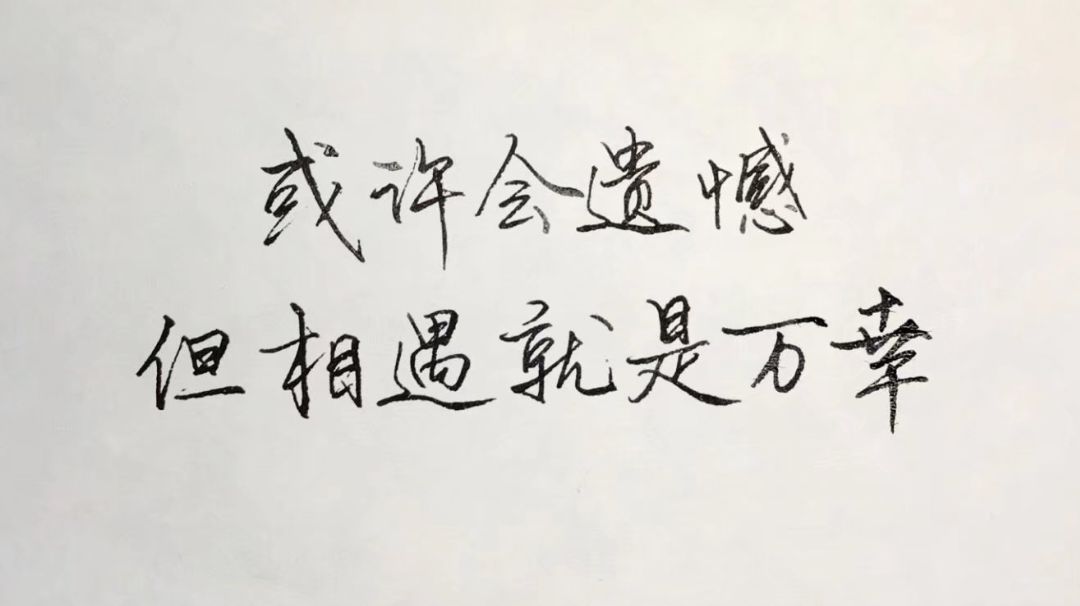 或许会遗憾
但相遇就是万幸